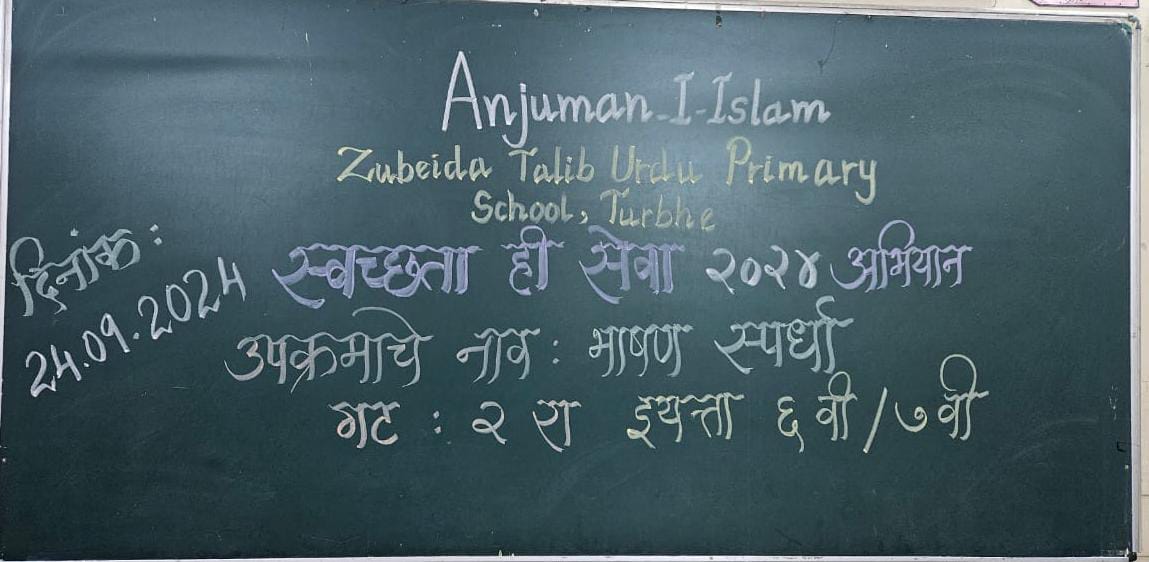 Anjuman-I-Islam
Zubeida Talib Urdu Primary
School, Turbhe
दिनांक:
24.09.2024
स्वच्छता ही सेवा २०२४ अभियान
उपक्रमाचे नाव: भाषण स्पर्धा
गट : २ रा इयत्ता ६ वी/७वी